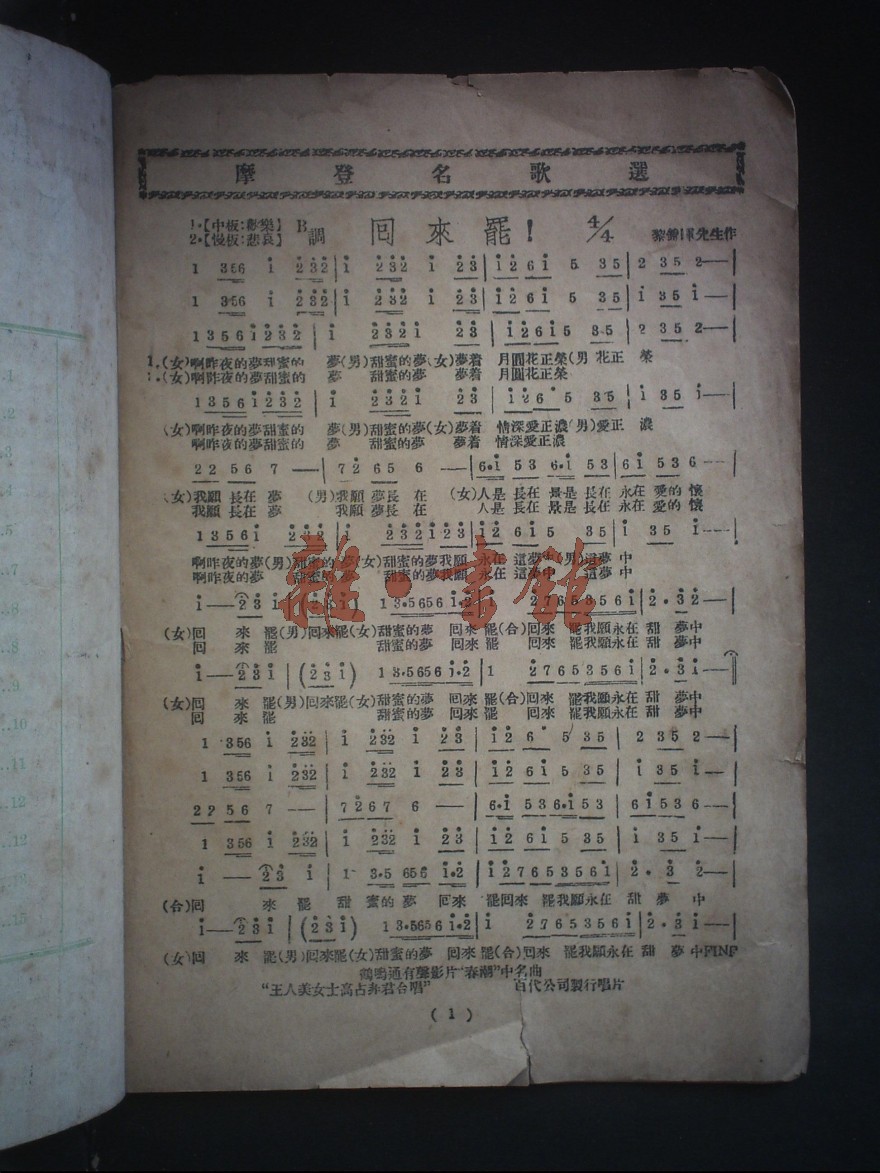 摩登名歌選
1.【中板:歡樂】 B調 回來罷! 4/4
2.【慢板:悲哀】 先生作
1 356 i 232 | i 232 i 23 | i 2 6 i 5 35 | 2 35 2— |
1 356 i 232 | i 232 i 23 | i 2 6 i 5 35 | i 35 i— |
1 3 5 6 i 2 3 2 | i 2 3 2 i 2 3 | i 2 6 i 5 3 5 | 2 3 5 2— |
1.(女)啊昨夜的夢甜蜜的 夢(男)甜蜜的夢(女)夢着 月圓花正榮(男 花正 榮
(女)啊昨夜的夢甜蜜的 夢 甜蜜的夢 夢着 月圓花正榮
1 3 5 6 i 2 3 2 | i 2 3 2 i 2 3 | i 2 6 5 3 5 | i 3 5 i— |
(女)啊昨夜的夢甜蜜的 夢(男)甜蜜的夢(女)夢着 情深愛正濃(男)愛正 濃
啊昨夜的夢甜蜜的 夢 甜蜜的夢 夢着 情深愛正濃
2 2 5 6 7 — | 7 2 6 5 6 — | 6·i 5 3 6·i 5 3 | 6 i 5 3 6 —
(女)我願 長在 夢 (男)我願 夢長 在 (女)人是 長在 景是 長在 永在 愛的 懷
我願 長在 夢 我願 夢長 在 人是 長在 景是 長在 永在 愛的 懷
1 3 5 6 i 2 3 2 | i 2 3 2 i 2 3 | i 2 6 i 5 3 5 | i 3 5 i— |
啊昨夜的夢(男)甜蜜的夢(女)甜蜜的夢我願 永在 這夢中(男)這夢 中
啊昨夜的夢 甜蜜的夢 甜蜜的夢我願 永在 這夢中 這夢 中
雜·書館
i— 2 3 i | (2 3 i) 1 3·5 6 5 6 i·2 | i 2 7 6 5 3 5 6 i | 2·3 2— |
(女)回 來 罷(男)回來罷(女)甜蜜的夢 回來 罷(合)回來 罷我願永在 甜 夢中
回 來 罷 甜蜜的夢 回來 罷 回來 罷我願永在 甜 夢中
i— 2 3 i | (2 3 i) 1 3·5 6 5 6 i·2 | 1 2 7 6 5 3 5 6 i | 2·3 i— |
(女)回 來 罷(男)回來罷(女)甜蜜的夢 回來 罷(合)回來 罷我願永在 甜 夢中
回 來 罷 甜蜜的夢 回來 罷 回來 罷我願永在 甜 夢中
1 356 i 232 | i 232 i 23 | i 2 6 5 35 | 2 35 2— |
1 356 i 232 | i 232 i 23 | i 2 6 i 5 35 | i 35 i— |
2 2 5 6 7 — | 7 2 6 7 6 — | 6·i 5 3 6·i 5 3 | 6 i 5 3 6 — |
1 356 i 232 | i 232 i 23 | i 2 6 i 5 35 | i 35 i |
i — 2 3 i | 1 3·5 6 5 6 i·2 | i 2 7 6 5 3 5 6 i | 2·3 2
(合)回 來 罷 甜 蜜的 夢 回來 罷回來 罷我願永在 甜 夢 中
i— 2 3 i | (2 3 i) 1 3·5 6 5 6 i·2 | i 2 7 6 5 3 5 6 i | 2·3 i— |
(女)回 來 罷(男)回來罷(女)甜蜜的夢 回來 罷(合)回來 罷我願永在 甜 夢中FINE
鶴鳴通有聲影片"春潮"中名曲
"王人美女士高占非君合唱" 百代公司製行唱片
( 1 )
.1
.3
..9
..10
..11
..12
..12
..15